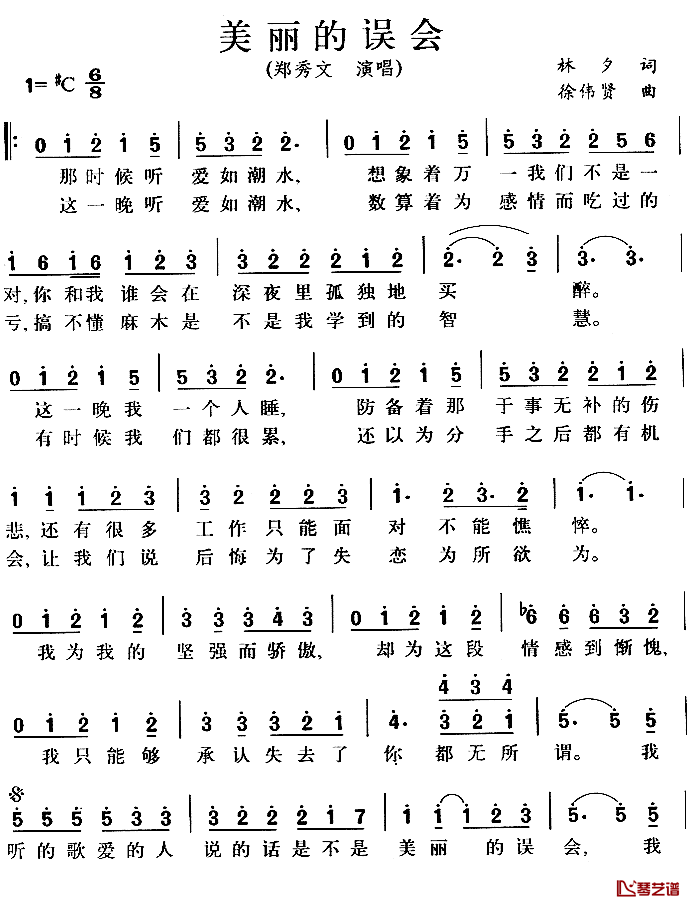 美丽的误会
(郑秀文 演唱)
林夕 词
1=#C 6/8
徐伟贤 曲
0 1 2 1 5 | 5 3 2 2. | 0 1 2 1 5 | 5 3 2 2 5 6
那时候听 爱如潮水, 想象着万 一我们不是一
这一晚听 爱如潮水, 数算着为 感情而吃过的
1 6 1 6 1 2 3 | 3 2 2 2 1 2 | 2. 2 3 | 3. 3.
对,你和我谁会在 深夜里孤独地 买 醉。
亏,搞不懂麻木是 不是我学到的 智 慧。
0 1 2 1 5 | 5 3 2 2. | 0 1 2 1 5 | 5 3 2 2 2 1
这一晚我 一个人睡, 防备着那 于事无补的伤
有时候我 们都很累, 还以为分 手之后都有机
1 1 1 2 3 | 3 2 2 2 3 | 1. 2 3. 2 | 1. 1.
悲,还有很多 工作只能面 对不能憔 悴。
会,让我们说 后悔为了失 恋为所欲 为。
0 1 2 1 2 | 3 3 3 4 3 | 0 1 2 1 2 | b6 6 6 3 2
我为我的 坚强而骄傲, 却为这段 情感到惭愧,
4 3 4
0 1 2 1 2 | 3 3 3 2 1 | 4. 3 2 1 | 5. 5 5
我只能够 承认失去了 你都无所 谓。我
5 5 5 5 3 3 | 3 2 2 2 1 7 | 1 1 1 2 3 | 5. 5 5
听的歌爱的人 说的话是不是 美丽的误 会,我
琴艺谱